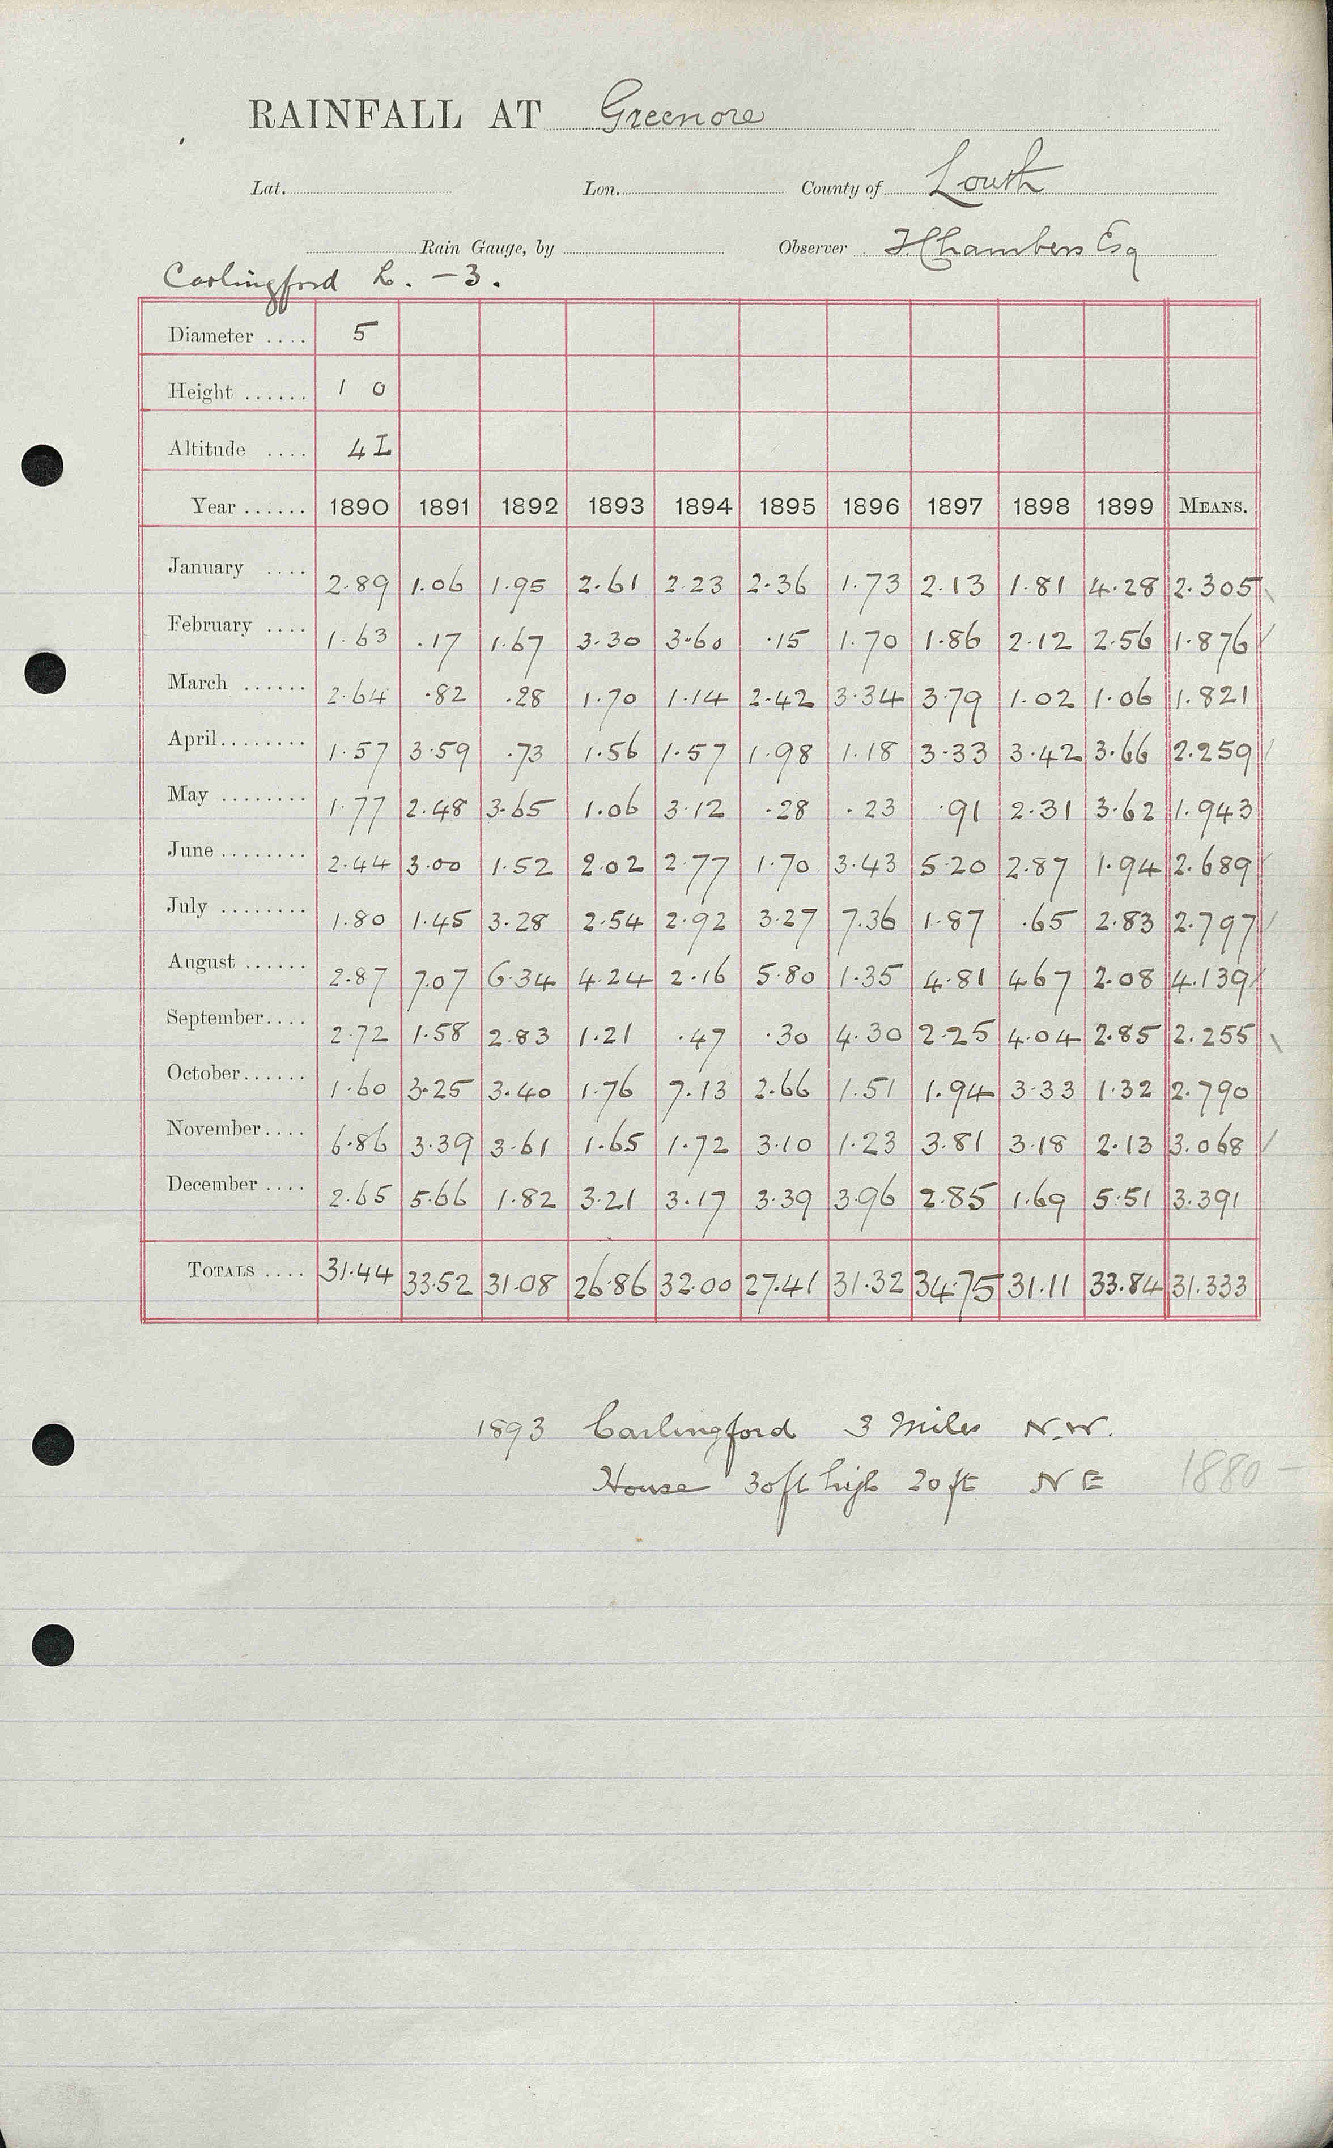 RAINFALL AT Greenore
Lat. Lon. County of Louth
Rain Gauge, by Observer Chambers Esq
Carlingford L. - 3.
Diameter .... 5
Height ...... 1 0
Altitude .... 4 I
Year ...... 1890 1891 1892 1893 1894 1895 1896 1897 1898 1899 MEANS.
January .... 2.89 1.06 1.95 2.61 2.23 2.36 1.73 2.13 1.81 4.28 2.305
February .... 1.63 .17 1.67 3.30 3.60 .15 1.70 1.86 2.12 2.56 1.876
March ...... 2.64 .82 .28 1.70 1.14 2.42 3.34 3.79 1.02 1.06 1.821
April ........ 1.57 3.59 .73 1.56 1.57 1.98 1.18 3.33 3.42 3.66 2.259
May ........ 1.77 2.48 3.65 1.06 3.12 .28 .23 .91 2.31 3.62 1.943
June ........ 2.44 3.00 1.52 2.02 2.77 1.70 3.43 5.20 2.87 1.94 2.689
July ........ 1.80 1.45 3.28 2.54 2.92 3.27 7.36 1.87 .65 2.83 2.797
August ...... 2.87 7.07 6.34 4.24 2.16 5.80 1.35 4.81 4.67 2.08 4.139
September .... 2.72 1.58 2.83 1.21 .47 .30 4.30 2.25 4.04 2.85 2.255
October ...... 1.60 3.25 3.40 1.76 7.13 2.66 1.51 1.94 3.33 1.32 2.790
November .... 6.86 3.39 3.61 1.65 1.72 3.10 1.23 3.81 3.18 2.13 3.068
December .... 2.65 5.66 1.82 3.21 3.17 3.39 3.96 2.85 1.69 5.51 3.391
TOTALS .... 31.44 33.52 31.08 26.86 32.00 27.41 31.32 34.75 31.11 33.84 31.333
1893 Carlingford 3 Miles N.W.
House 30ft high 20ft N E 1880 -